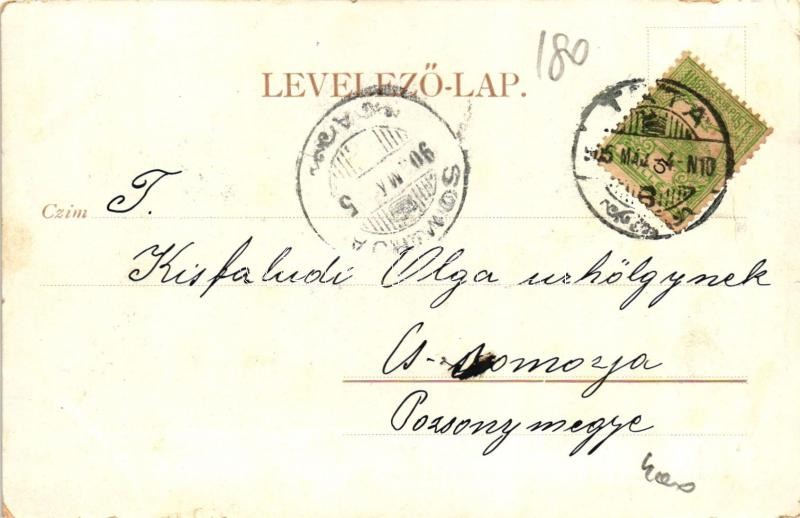 180
LEVELEZŐ-LAP.
TATA
905 MÁJ. 4 - N10
SOMORJA
905 MÁJ 5
Czim T.
Kisfaludi Olga urhölgynek
Cs-Somorja
Pozsonymegye